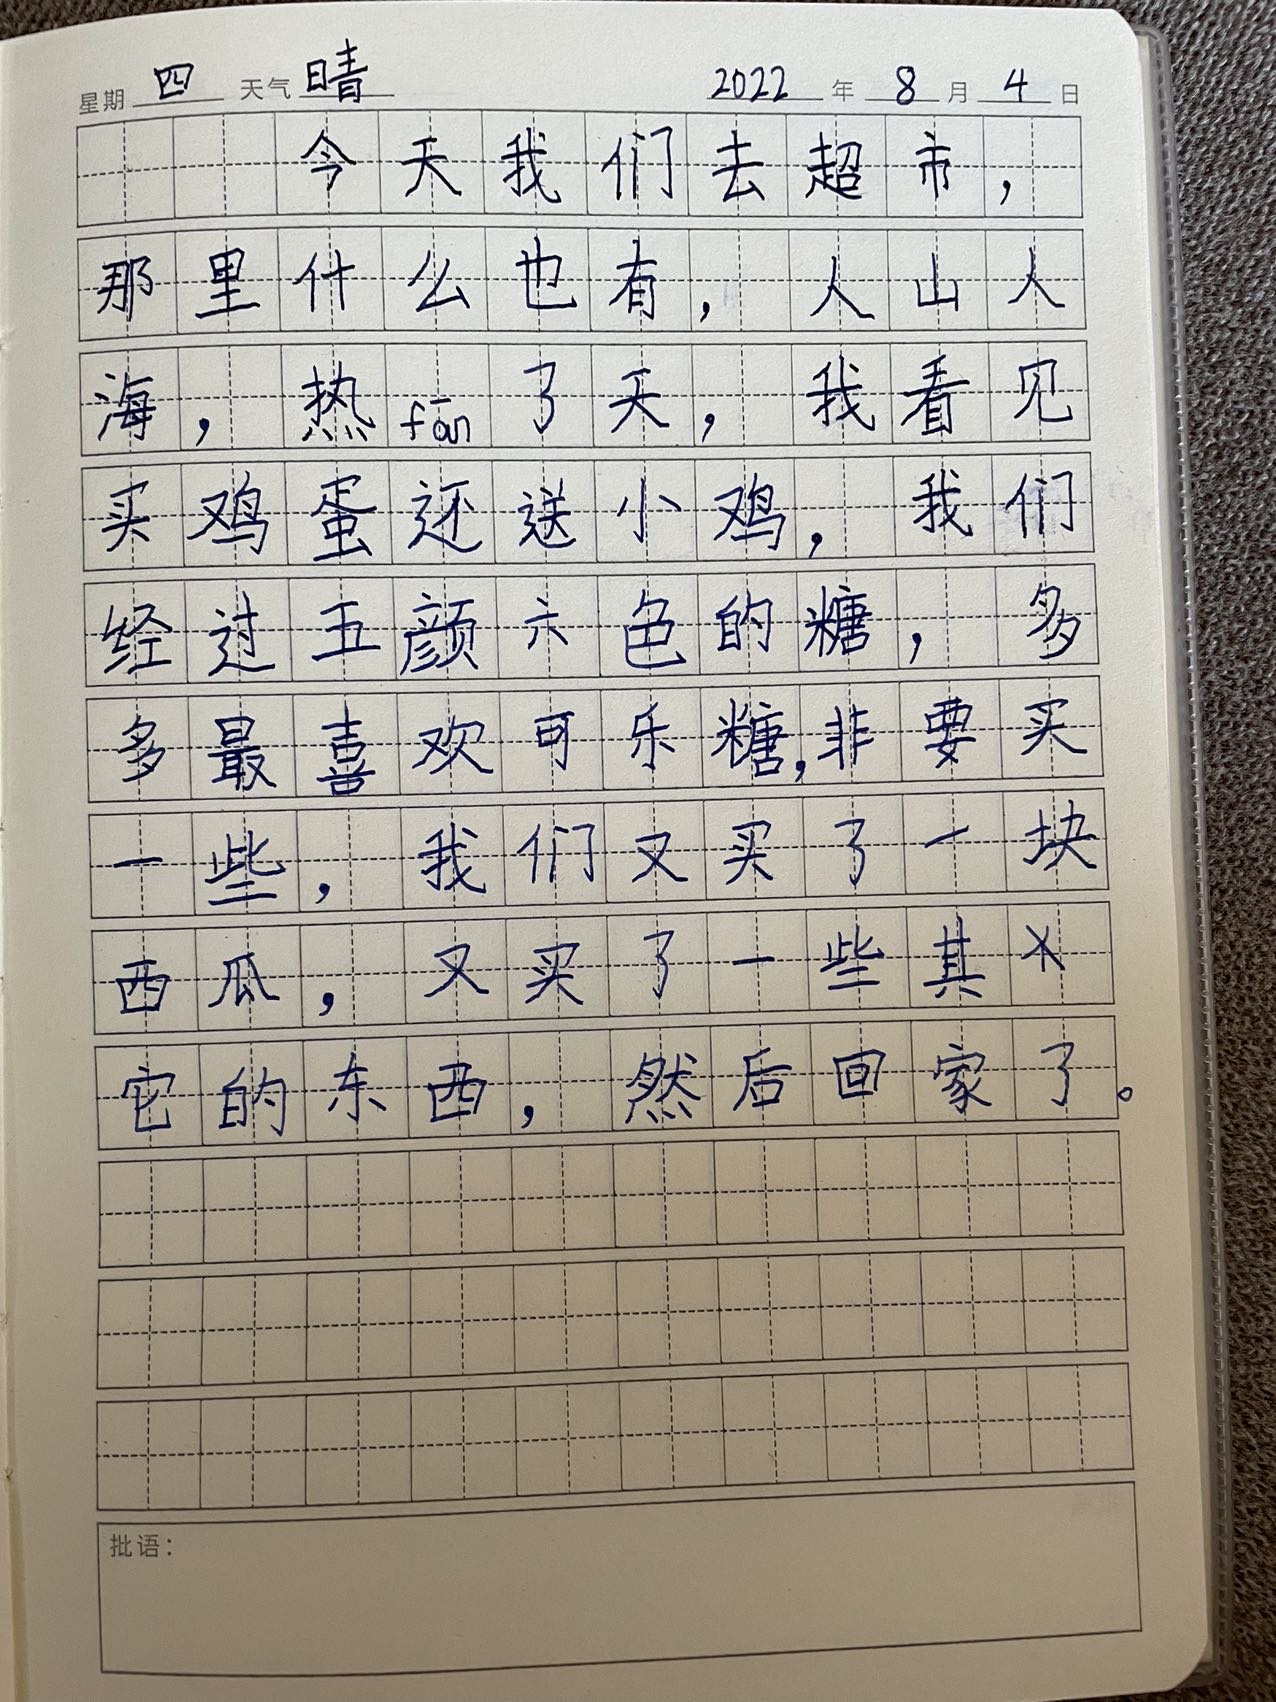 星期 四 天气 晴 2022 年 8 月 4 日
今天我们去超市，
那里什么也有，人山人
海，热fān了天，我看见
买鸡蛋还送小鸡，我们
经过五颜六色的糖，多
多最喜欢可乐糖，非要买
一些，我们又买了一块
西瓜，又买了一些其
它的东西，然后回家了。
批语：